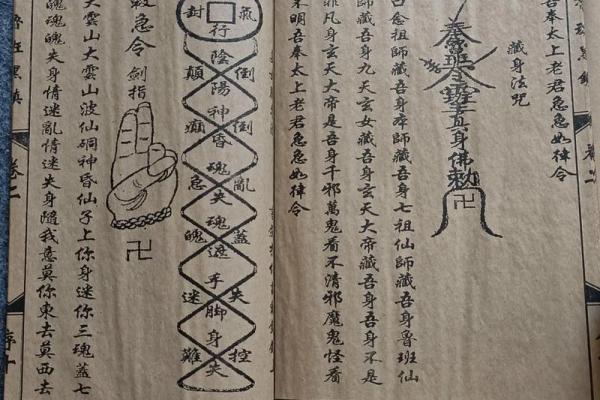 吾奉太上老君急急如律令
藏身法咒
奉魯班
身佛勅
卍
口念祖師藏吾身本師藏吾身七祖仙師藏吾身魯班仙
師藏吾身九天玄女藏吾身玄天大帝藏吾身吾身不是
非凡身玄天大帝是吾身千邪萬鬼看不清邪魔鬼怪看
不明吾奉太上老君急急如律令
氣
封
行
倒倒亂蓋失控
陰陽神昏魂失魂遮手脚身失
顛癲急魄迷難
急令
劍指
卍
大雲山大雲山波仙硐神昏仙子上你身迷你三魂蓋七
魄魂魄失身情迷亂情迷失身隨我意莫你東去莫西去
卷二